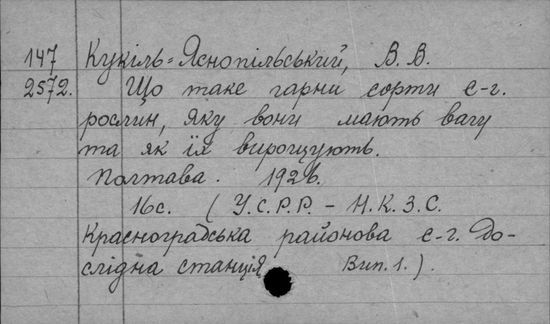 147 Кукіль=Яснопільський, В. В.
2572. Що таке гарни сорти с-г.
рослин, яку вони мають вагу
та як їх вирощують.
Полтава. 1926.
16с. ( У.С.Р.Р. – Н.К.З.С.
Красноградська районова с-г. До-
слідна станція Вип. 1. ).